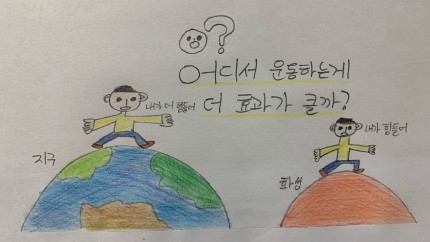 ?
어디서 운동하는게
더 효과가 클까?
내가 더 힘들어
내가 힘들어
지구
화성